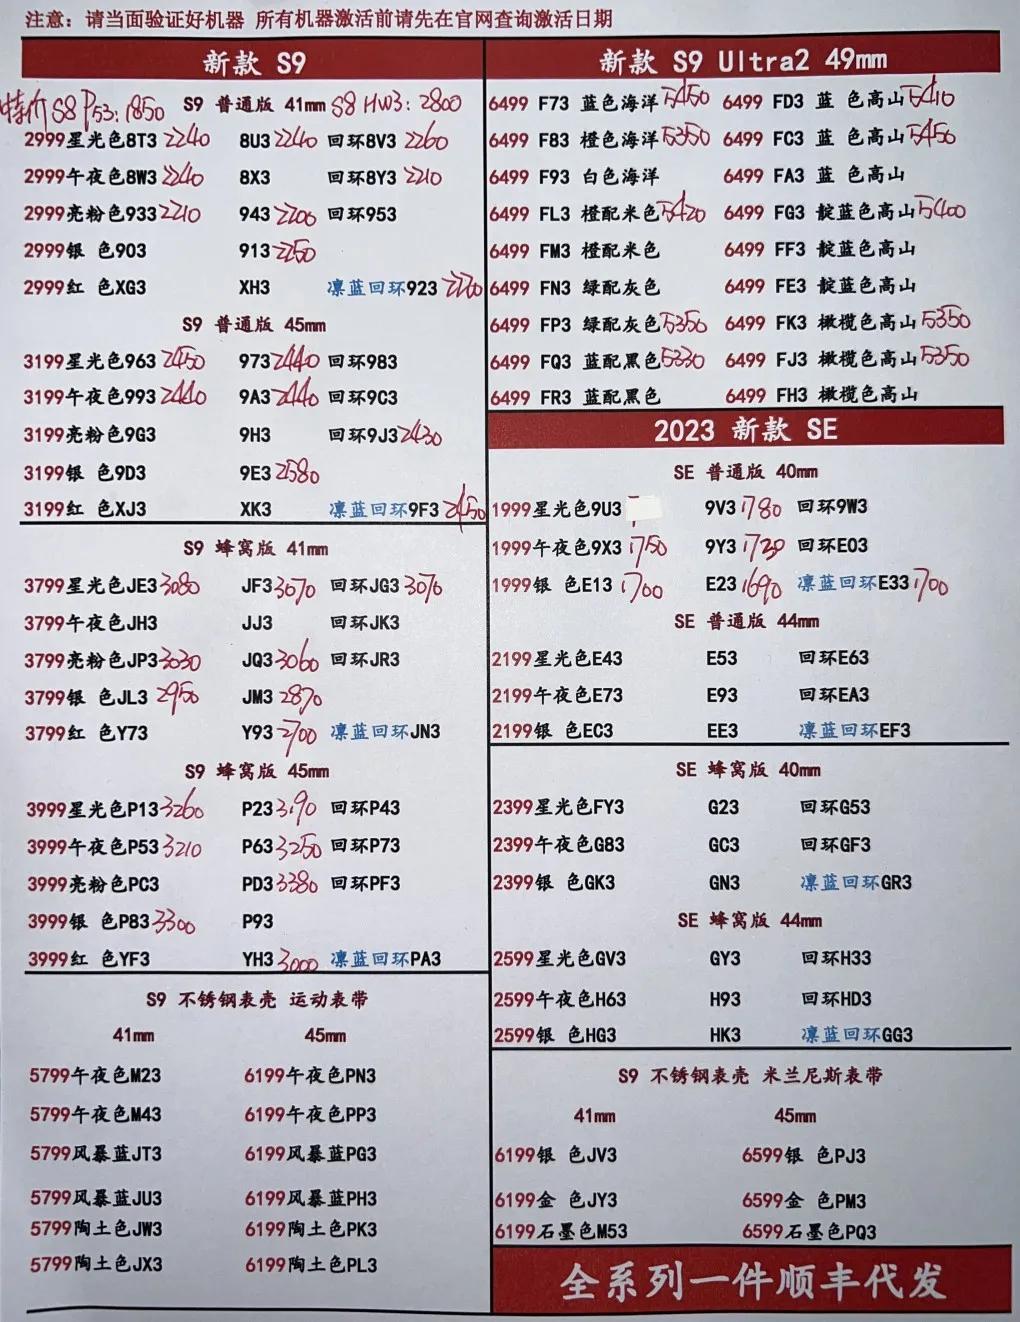 注意：请当面验证好机器 所有机器激活前请先在官网查询激活日期
新款 S9
特价 S8 P53：1850 S9 普通版 41mm S8 HW3：2800
2999星光色8T3 2240 8U3 2240 回环8V3 2260
2999午夜色8W3 2240 8X3 回环8Y3 2210
2999亮粉色933 2210 943 2200 回环953
2999银 色903 913 2250
2999红 色XG3 XH3 凛蓝回环923 2220
S9 普通版 45mm
3199星光色963 2450 973 2440 回环983
3199午夜色993 2440 9A3 2440 回环9C3
3199亮粉色9G3 9H3 回环9J3 2430
3199银 色9D3 9E3 2580
3199红 色XJ3 XK3 凛蓝回环9F3 2450
S9 蜂窝版 41mm
3799星光色JE3 3080 JF3 3070 回环JG3 3070
3799午夜色JH3 JJ3 回环JK3
3799亮粉色JP3 3030 JQ3 3060 回环JR3
3799银 色JL3 2950 JM3 2870
3799红 色Y73 Y93 2700 凛蓝回环JN3
S9 蜂窝版 45mm
3999星光色P13 3260 P23 3190 回环P43
3999午夜色P53 3210 P63 3250 回环P73
3999亮粉色PC3 PD3 3380 回环PF3
3999银 色P83 3300 P93
3999红 色YF3 YH3 3000 凛蓝回环PA3
S9 不锈钢表壳 运动表带
41mm 45mm
5799午夜色M23 6199午夜色PN3
5799午夜色M43 6199午夜色PP3
5799风暴蓝JT3 6199风暴蓝PG3
5799风暴蓝JU3 6199风暴蓝PH3
5799陶土色JW3 6199陶土色PK3
5799陶土色JX3 6199陶土色PL3
新款 S9 Ultra2 49mm
6499 F73 蓝色海洋 5450 6499 FD3 蓝 色高山 5410
6499 F83 橙色海洋 5350 6499 FC3 蓝 色高山 5450
6499 F93 白色海洋 6499 FA3 蓝 色高山
6499 FL3 橙配米色 5420 6499 FG3 靛蓝色高山 5400
6499 FM3 橙配米色 6499 FF3 靛蓝色高山
6499 FN3 绿配灰色 6499 FE3 靛蓝色高山
6499 FP3 绿配灰色 5350 6499 FK3 橄榄色高山 5350
6499 FQ3 蓝配黑色 5330 6499 FJ3 橄榄色高山 5350
6499 FR3 蓝配黑色 6499 FH3 橄榄色高山
2023 新款 SE
SE 普通版 40mm
1999星光色9U3 9V3 1780 回环9W3
1999午夜色9X3 1750 9Y3 1720 回环E03
1999银 色E13 1700 E23 1690 凛蓝回环E33 1700
SE 普通版 44mm
2199星光色E43 E53 回环E63
2199午夜色E73 E93 回环EA3
2199银 色EC3 EE3 凛蓝回环EF3
SE 蜂窝版 40mm
2399星光色FY3 G23 回环G53
2399午夜色G83 GC3 回环GF3
2399银 色GK3 GN3 凛蓝回环GR3
SE 蜂窝版 44mm
2599星光色GV3 GY3 回环H33
2599午夜色H63 H93 回环HD3
2599银 色HG3 HK3 凛蓝回环GG3
S9 不锈钢表壳 米兰尼斯表带
41mm 45mm
6199银 色JV3 6599银 色PJ3
6199金 色JY3 6599金 色PM3
6199石墨色M53 6599石墨色PQ3
全系列一件顺丰代发